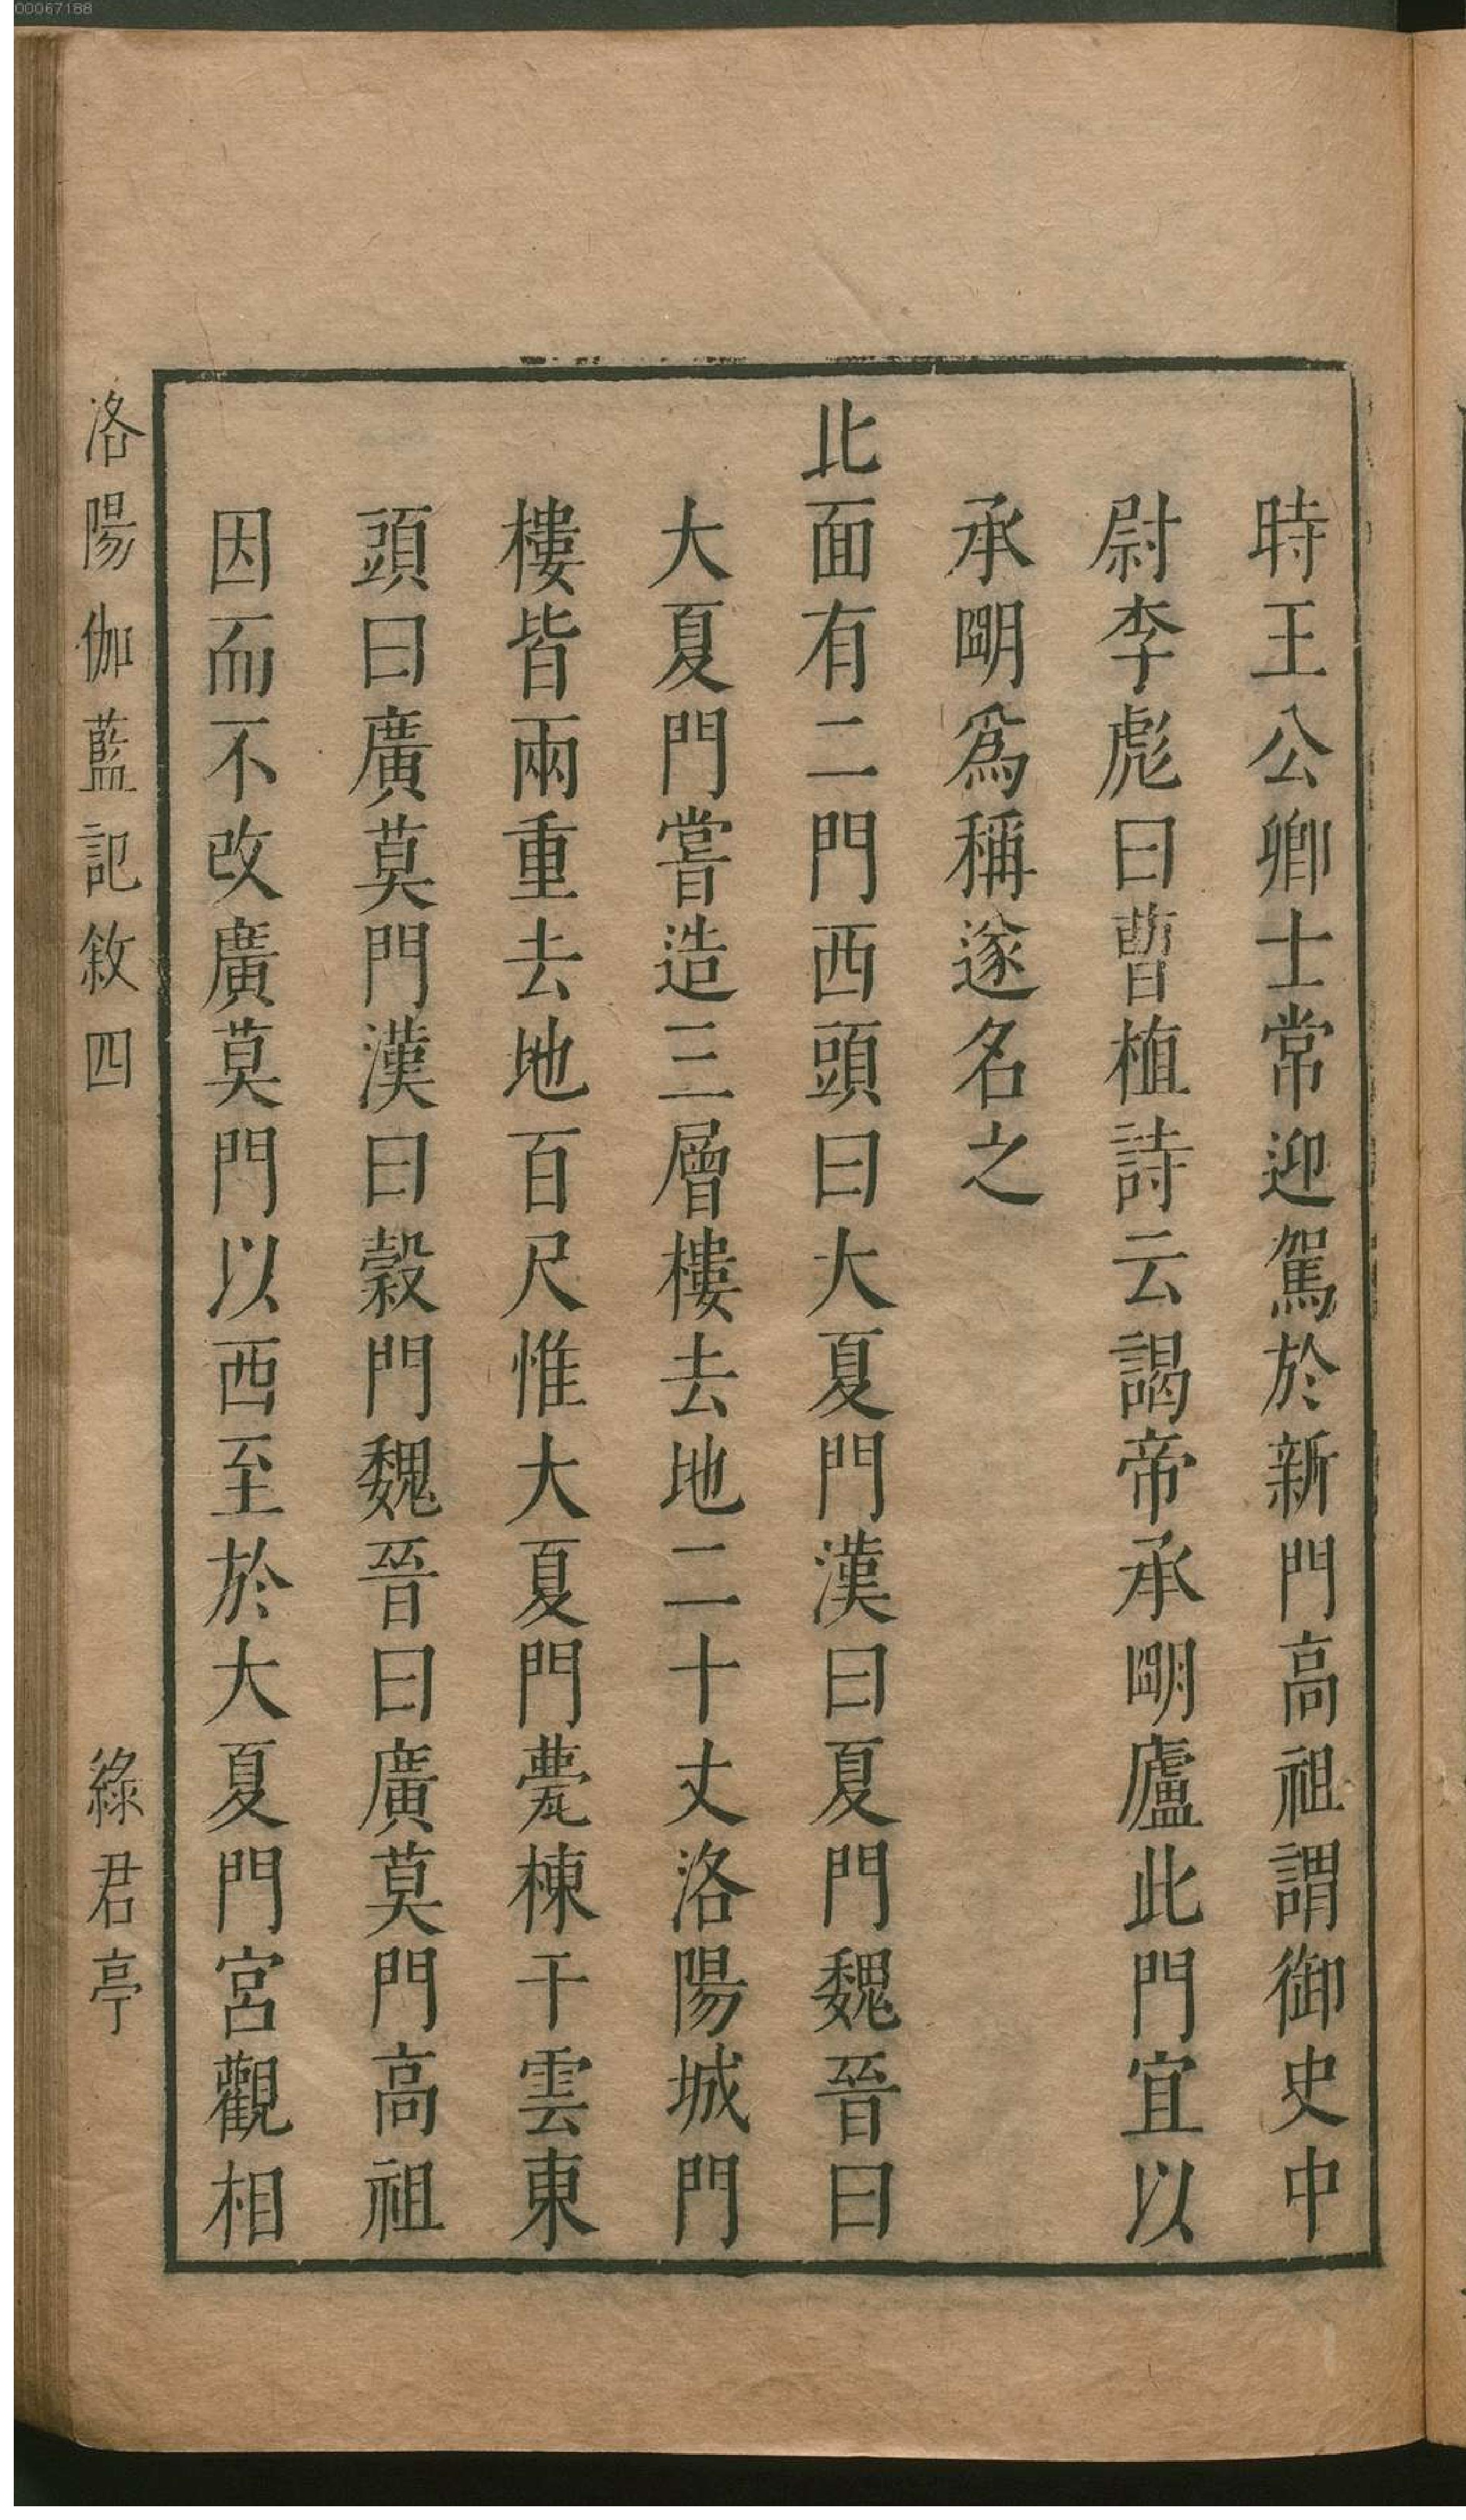 00067188
時王公卿士常迎駕於新門高祖謂御史中
尉李彪曰曹植詩云謁帝承明廬此門宜以
承明爲稱遂名之
北面有二門西頭曰大夏門漢曰夏門魏晉曰
大夏門嘗造三層樓去地二十丈洛陽城門
樓皆兩重去地百尺惟大夏門甍棟干雲東
頭曰廣莫門漢曰穀門魏晉曰廣莫門高祖
因而不改廣莫門以西至於大夏門宮觀相
洛陽伽藍記敘 四 綠君亭